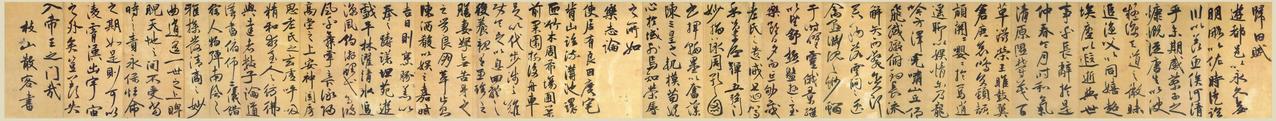 歸田賦
遊都邑以永久無
明略以佐時徒臨
川以羨魚俟河清
乎未期感蔡子之
慷慨從唐生以決
疑諒天道之微昧
追漁父以同嬉超
埃塵以遐逝與世
事乎長辭於是
仲春令月時和氣
清原隰鬱茂百
草滋榮王雎鼓翼
倉庚哀鳴交頸頡
頏關關嚶嚶於焉逍
遙聊以娛情爾乃龍
吟方澤虎嘯山丘仰
飛纖繳俯釣長流
觸矢而斃貪餌
吞鈎落雲間之逸
禽懸淵沉之魦鰡
于時曜靈俄景繼
以望舒極般遊之至
樂雖日夕而忘劬感
老氏之遺誡將迴駕
乎蓬廬彈五絃之
妙指詠周孔之圖
書揮翰墨以奮藻
陳三皇之軌模苟縱
心於物外安知榮辱
之所如
樂志論
使居有良田廣宅
背山臨流溝池環
匝竹木周布場圃築
前果園樹後舟車
足以代步涉之難
使令足以息四體之
役養親有兼珍之
膳妻孥無苦身之
勞良朋萃止則
陳酒肴以娛之嘉時
吉日則烹羔豚以
奉之躊躇畦苑遊
戲平林濯清水追
涼風釣游鯉弋高
鴻風乎舞雩之下詠歸
高堂之上安神閨房
思老氏之玄虛呼吸
精和求至人之彷彿
與達者數子論道
講書俯仰二儀錯
綜人物彈南風之
雅操發清商之妙
曲逍遙一世之上睥
睨天地之間不受當
時之責永保性命
之期如是則可以
凌霄漢出宇宙
之外矣豈羡夫
入帝王之門哉
枝山散客書